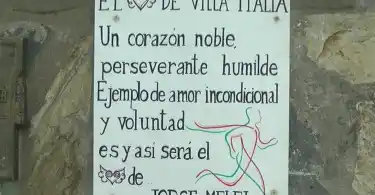 EL DE VILLA ITALIA
Un corazón noble,
perseverante humilde
Ejemplo de amor incondicional
y voluntad
es y asi será el
de
JORGE